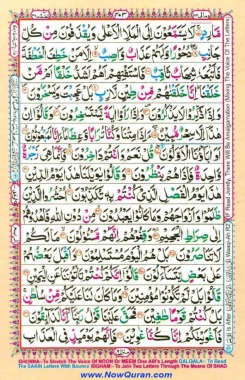 مَّارِدٍ ۝ لَا يَسَّمَّعُونَ إِلَى الْمَلَإِ الْأَعْلٰى وَيُقْذَفُونَ مِنْ كُلِّ
جَانِبٍ ۝ دُحُورًا وَّلَهُمْ عَذَابٌ وَّاصِبٌ ۝ إِلَّا مَنْ خَطِفَ الْخَطْفَةَ
فَأَتْبَعَهٗ شِهَابٌ ثَاقِبٌ ۝ فَاسْتَفْتِهِمْ أَهُمْ أَشَدُّ خَلْقًا أَمْ مَّنْ
خَلَقْنَا ۚ إِنَّا خَلَقْنٰهُمْ مِّنْ طِينٍ لَّازِبٍ ۝ بَلْ عَجِبْتَ وَيَسْخَرُونَ ۝
وَإِذَا ذُكِّرُوا لَا يَذْكُرُونَ ۝ وَإِذَا رَأَوْا اٰيَةً يَّسْتَسْخِرُونَ ۝ وَقَالُوا إِنْ
هٰذَا إِلَّا سِحْرٌ مُّبِينٌ ۝ ءَإِذَا مِتْنَا وَكُنَّا تُرَابًا وَّعِظَامًا ءَإِنَّا لَمَبْعُوثُونَ ۝
أَوَاٰبَاؤُنَا الْأَوَّلُونَ ۝ قُلْ نَعَمْ وَأَنْتُمْ دَاخِرُونَ ۝ فَإِنَّمَا هِيَ زَجْرَةٌ
وَّاحِدَةٌ فَإِذَا هُمْ يَنْظُرُونَ ۝ وَقَالُوا يٰوَيْلَنَا هٰذَا يَوْمُ الدِّينِ ۝
هٰذَا يَوْمُ الْفَصْلِ الَّذِي كُنْتُمْ بِهٖ تُكَذِّبُونَ ۝ احْشُرُوا الَّذِينَ
ظَلَمُوا وَأَزْوَاجَهُمْ وَمَا كَانُوا يَعْبُدُونَ ۝ مِنْ دُونِ اللّٰهِ فَاهْدُوهُمْ
إِلٰى صِرَاطِ الْجَحِيمِ ۝ وَقِفُوهُمْ إِنَّهُمْ مَّسْئُولُونَ ۝ مَا لَكُمْ
لَا تَنَاصَرُونَ ۝ بَلْ هُمُ الْيَوْمَ مُسْتَسْلِمُونَ ۝ وَأَقْبَلَ بَعْضُهُمْ
عَلٰى بَعْضٍ يَّتَسَاءَلُونَ ۝ قَالُوا إِنَّكُمْ كُنْتُمْ تَأْتُونَنَا عَنِ الْيَمِينِ ۝
قَالُوا بَلْ لَّمْ تَكُونُوا مُؤْمِنِينَ ۝ وَمَا كَانَ لَنَا عَلَيْكُمْ مِّنْ سُلْطٰنٍ
بَلْ كُنْتُمْ قَوْمًا طٰغِينَ ۝ فَحَقَّ عَلَيْنَا قَوْلُ رَبِّنَا إِنَّا لَذَائِقُونَ ۝
فَأَغْوَيْنٰكُمْ إِنَّا كُنَّا غٰوِينَ ۝ فَإِنَّهُمْ يَوْمَئِذٍ فِي الْعَذَابِ
GHUNNA:- To Stretch The Voice Of NOON Or MEEM One Alif's Length QALQALA:- To Read
The SAKIN Letters With Bounce IDGHAM:- To Join Two Letters Through The Means Of SHAD
www.NowQuran.com